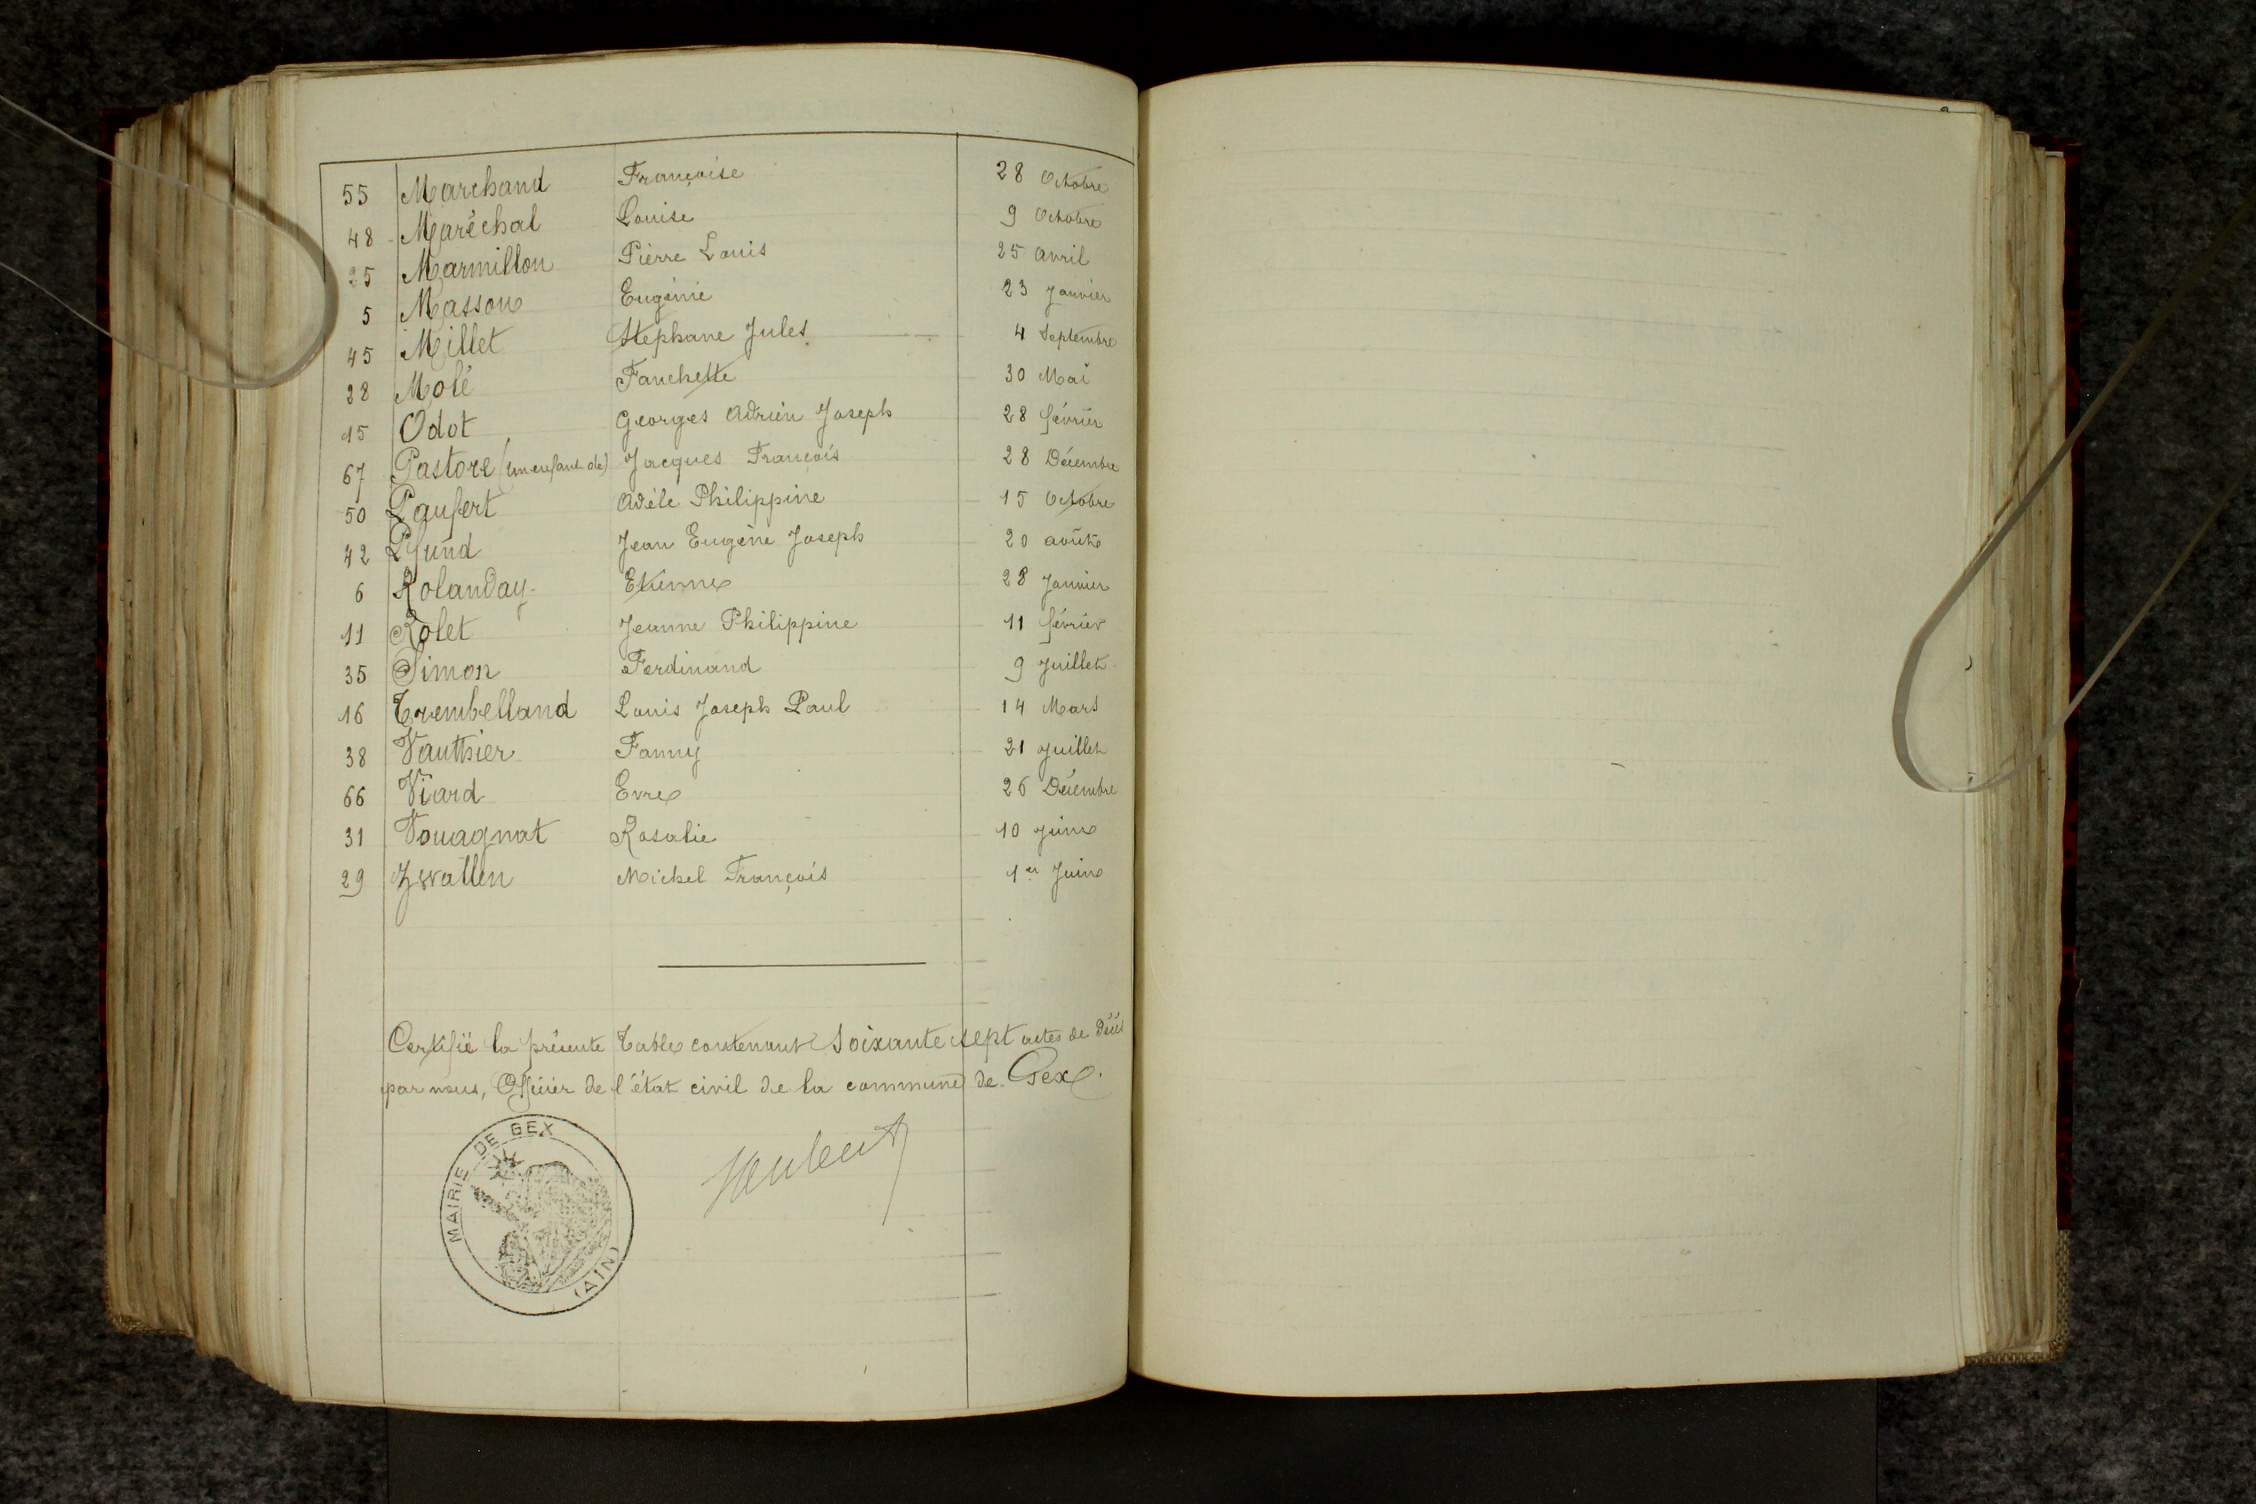 55 Marchand Françoise 28 Octobre
48 Maréchal Louise 9 Octobre
25 Marmillon Pierre Louis 25 avril
5 Masson Eugénie 23 Janvier
45 Millet Stephane Jules 4 Septembre
28 Molé Fanchette 30 Mai
15 Odot Georges Adrien Joseph 28 février
67 Pastore (un enfant de) Jacques François 28 Décembre
50 Paufert Adèle Philippine 15 Octobre
42 Pfund Jean Eugène Joseph 20 août
6 Rolanday Etienne 28 Janvier
11 Rolet Jeanne Philippine 11 février
35 Simon Ferdinand 9 Juillet
16 Trembelland Louis Joseph Paul 14 Mars
38 Vauthier Fanny 21 Juillet
66 Viard Evre 26 Décembre
31 Vouagnat Rosalie 10 Juin
29 Zwallen Michel François 1er Juin
Certifié la présente Table contenant soixante sept actes de Décès
par nous, Officier de l'état civil de la commune de Gex.
MAIRIE DE GEX
(AIN)